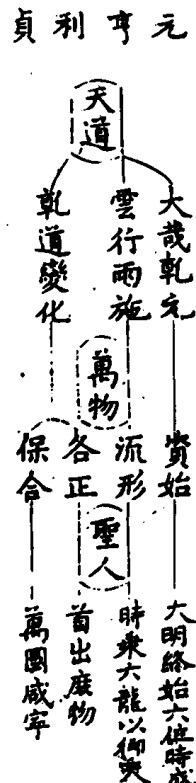 元亨利貞
天道
大哉乾元
雲行雨施
乾道變化
萬物
資始
流形
各正
保合
聖人
大明終始六位時成
時乘六龍以御
首出庶物
萬國咸寧